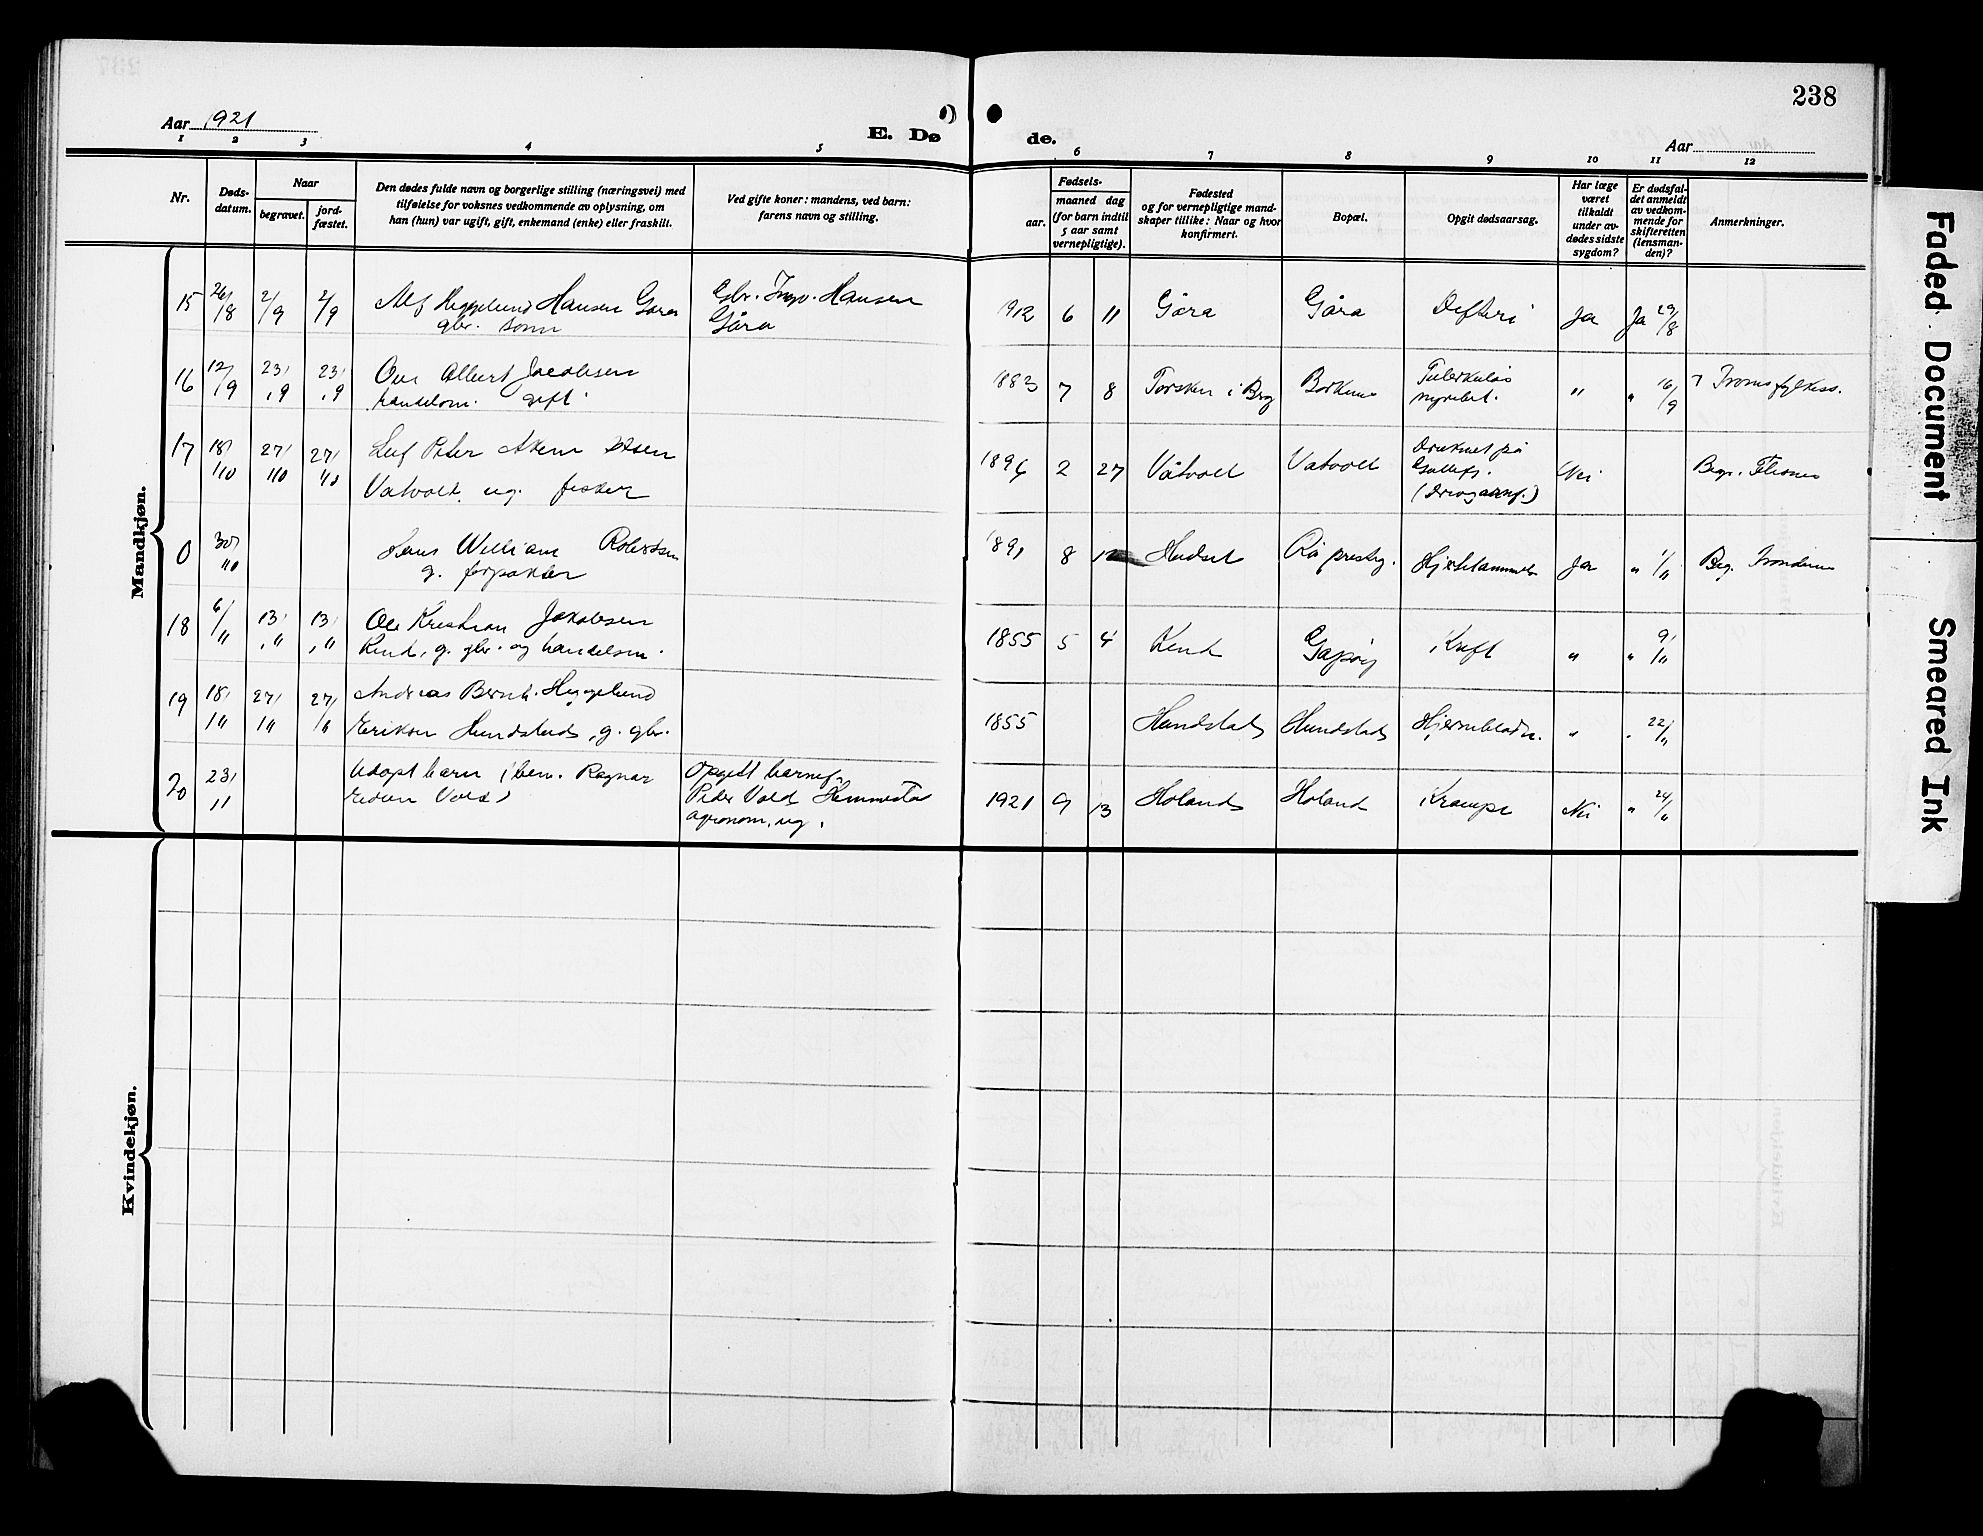 238
Aar 1921
E. Dø de.
Aar
1 2 3 4 5 6 7 8 9 10 11 12
Nr.
Døds-
datum.
Naar
begravet.
jord-
fæstet.
Den dødes fulde navn og borgerlige stilling (næringsvei) med
tilføielse for voksnes vedkommende av oplysning, om
han (hun) var ugift, gift, enkemand (enke) eller fraskilt.
Ved gifte koner: mandens, ved barn:
farens navn og stilling.
Fødsels-
aar.
maaned dag
(for barn indtil
5 aar samt
vernepligtige).
Fødested
og for vernepligtige mand-
skaper tillike: Naar og hvor
konfirmert.
Bopæl.
Opgit dødsaarsag.
Har læge
været
tilkaldt
under av-
dødes sidste
sygdom?
Er dødsfal-
det anmeldt
av vedkom-
mende for
skifteretten
(lensman-
den)?
Anmerkninger.
Mandkjøn.
15 26/8 2/9 2/9 Alf Heggelund Hansen Gåra
gbr. sønn
Gbr. Ingv. Hansen
Gåra
1912 6 11 Gåra Gåra Difteri Ja Ja 29/8
16 12/9 23/9 23/9 Ove Albert Jacobsen
handelsm. gift
1883 7 8 Torsken i Berg Tuberkuløs
nyrebet. " " 16/9 Troms fylkess.
17 18/10 27/10 27/10 Leif Peter
Våtvoll. ug. fisker
1896 2 27 Våtvoll Våtvoll Druknet på
Nei
0 30/10 Hans William Robertsen
g. forpakter
1891 8 Hadsel Ja " 1/11 Beg. Trondenes
18 6/11 13/11 13/11 Ole Kristian Jakobsen
g. gbr. og handelsm.
1855 5 4 Kræft " " 9/11
19 18/11 27/11 27/11 Andreas Bernh. Heggelund
Erikson Hundstad, g. gbr.
1855 Hundstad Hundstad " " 22/11
20 23/11 Udøpt barn (ben. Ragnar
Edvin Vold)
Opgitt barnef.
Peder Vold Hemmestad
agronom, ug.
1921 9 13 Holand Holand Krampe Nei " 24/11
Kvindekjøn.
Faded Document
Smeared Ink